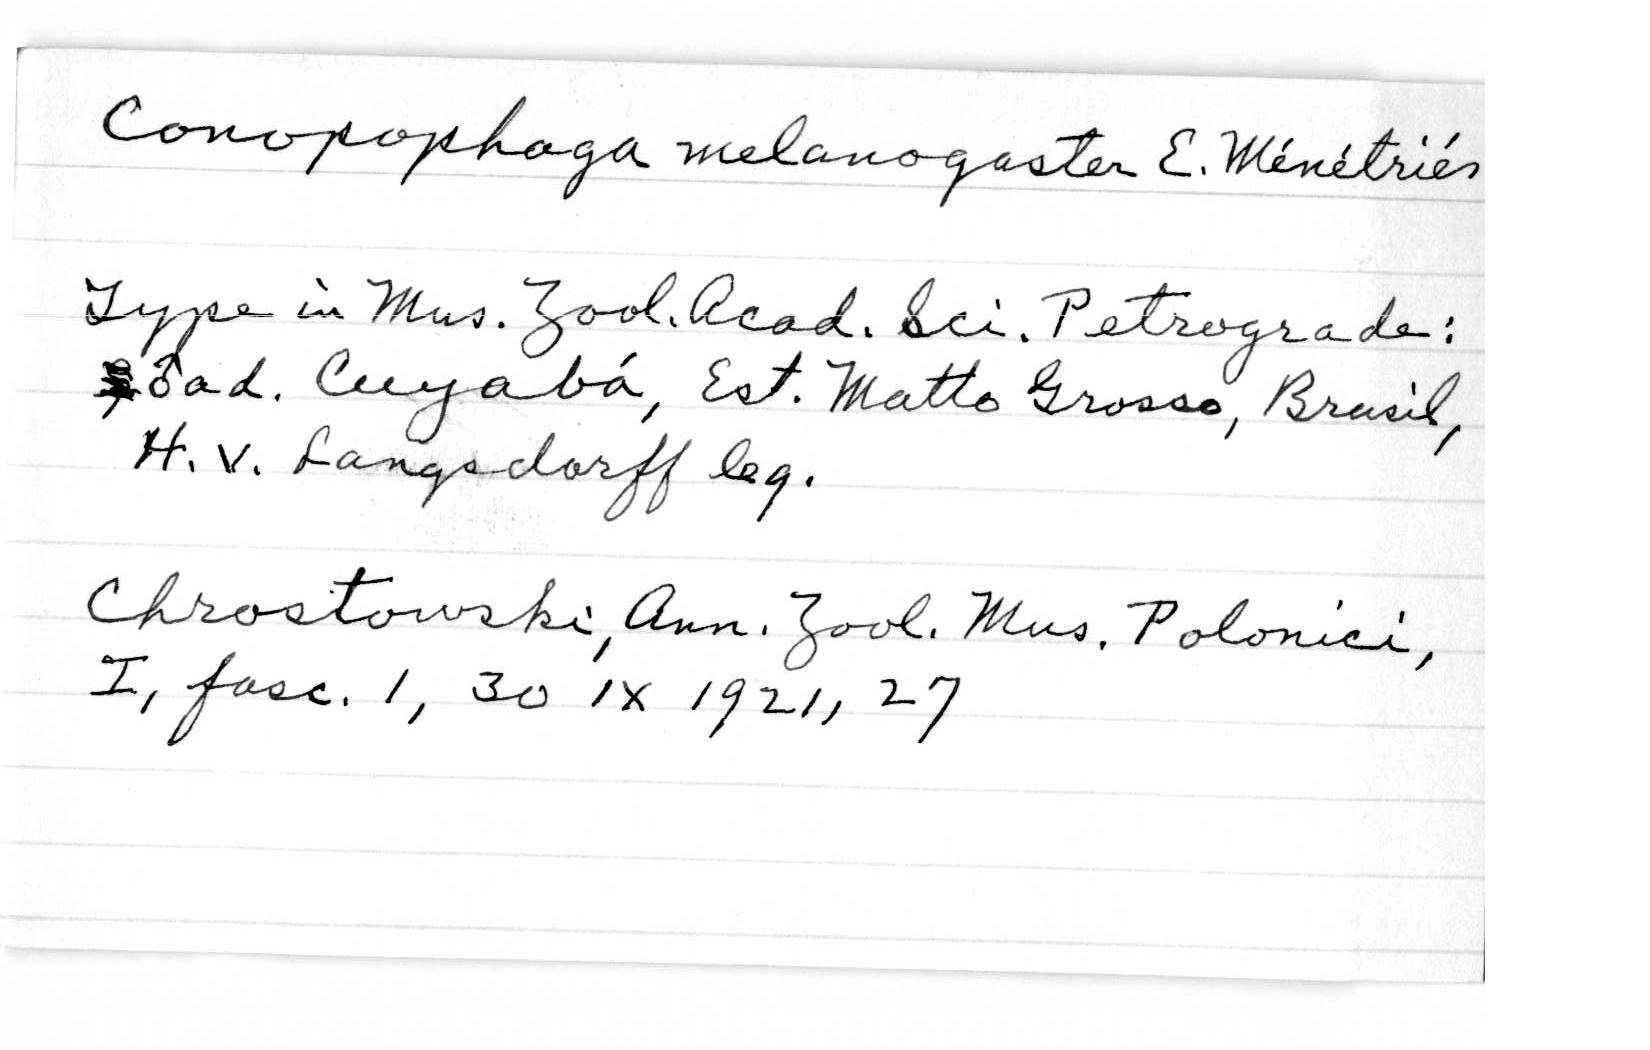 Conopophaga melanogaster E. Ménétriés
Type in Mus. Zool. Acad. Sci. Petrograde:
♂ad. Cuyabá, Est. Matto Grosso, Brasil,
H. v. Langsdorff leg.
Chrostowski, Ann. Zool. Mus. Polonici,
I, fasc. 1, 30 IX 1921, 27